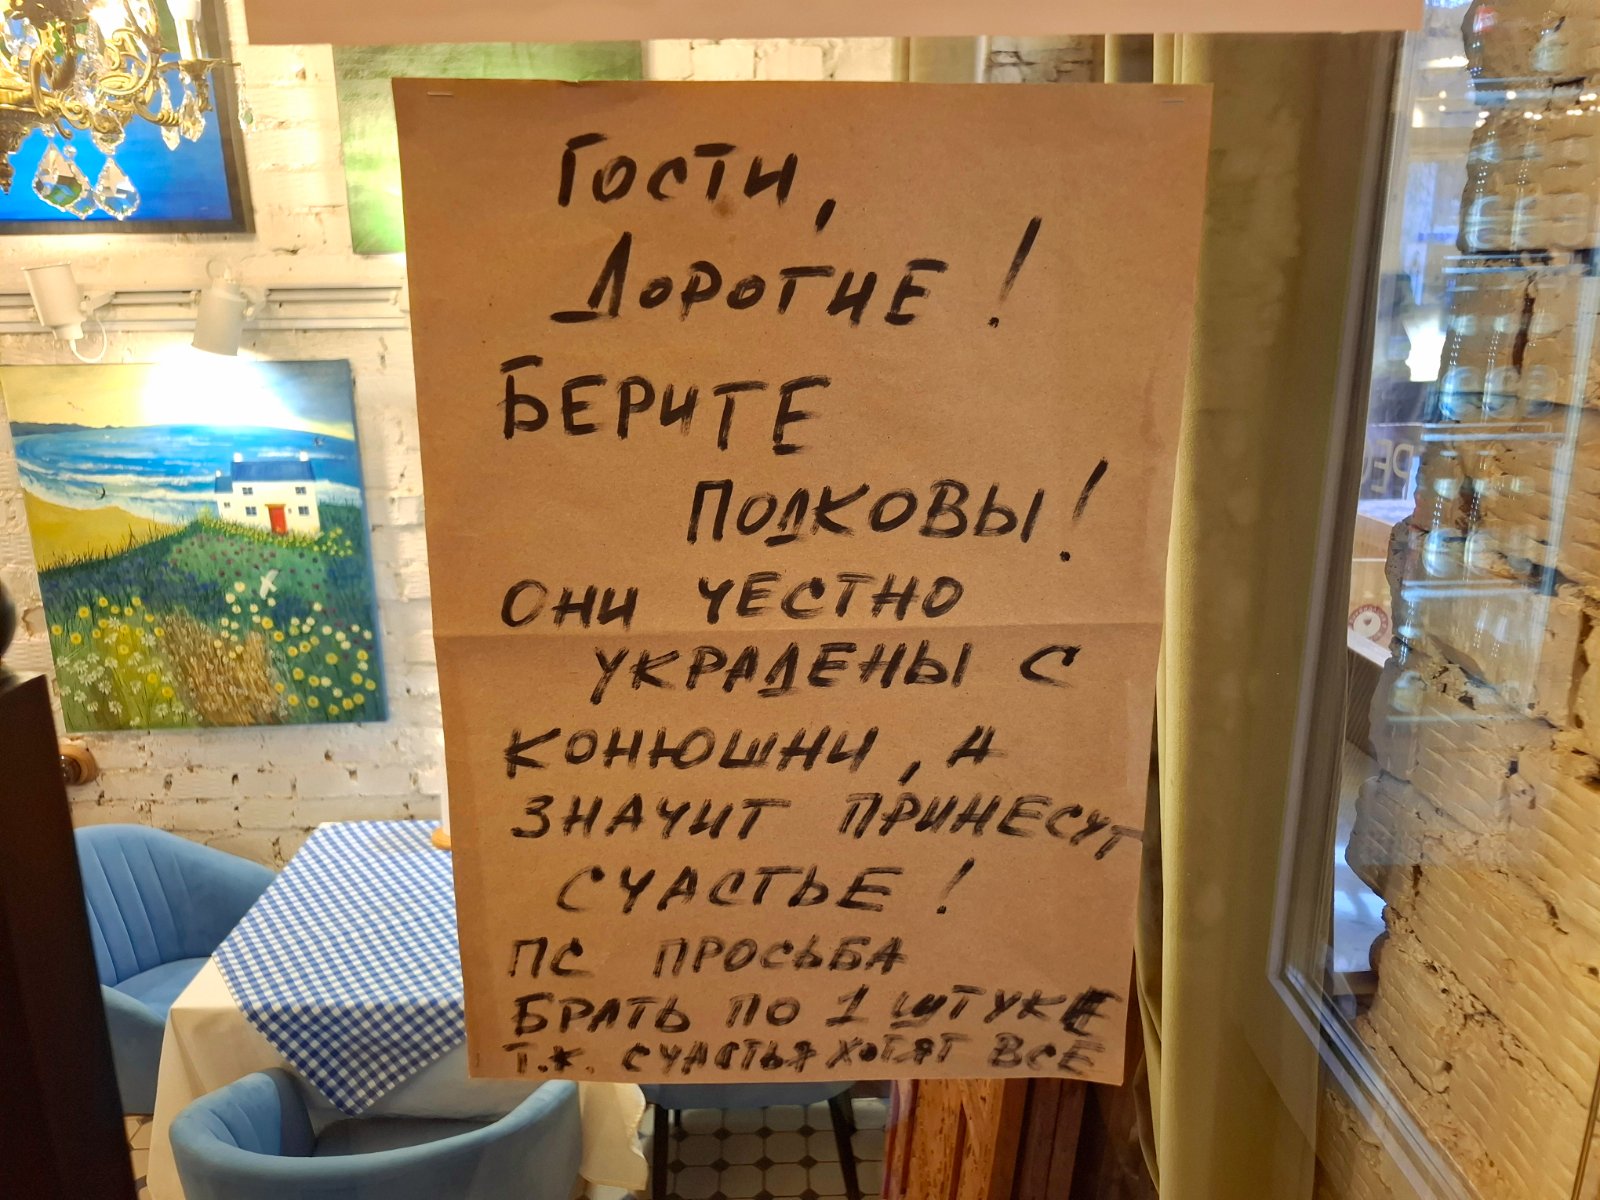 Гости,
Дорогие!
Берите
Подковы!
Они честно
украдены с
конюшни, а
значит принесут
счастье!
ПС просьба
брать по 1 штуке
т.к. счастья хотят все